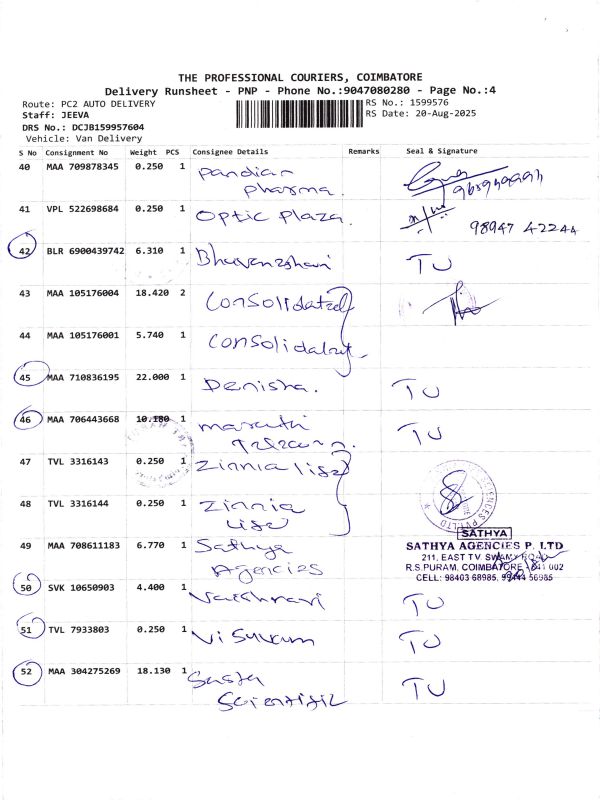 THE PROFESSIONAL COURIERS, COIMBATORE
Delivery Runsheet - PNP - Phone No.:9047080280 - Page No.:4
Route: PC2 AUTO DELIVERY
Staff: JEEVA
DRS No.: DCJB159957604
Vehicle: Van Delivery
RS No.: 1599576
RS Date: 20-Aug-2025
S No Consignment No Weight PCS Consignee Details Remarks Seal & Signature
40 MAA 709878345 0.250 1 Pandian
pharma.
41 VPL 522698684 0.250 1 Optic Plaza. 98947 42244
42 BLR 6900439742 6.310 1 Bhuvaneshari TU
43 MAA 105176004 18.420 2 Consolidated
44 MAA 105176001 5.740 1 Consolidated
45 MAA 710836195 22.000 1 Denisha. TU
46 MAA 706443668 10.180 1 maruthi TU
47 TVL 3316143 0.250 1 Zinnia life
48 TVL 3316144 0.250 1 Zinnia
life
SCIENCES PVT LTD
49 MAA 708611183 6.770 1 Sathya
Agencies
SATHYA
SATHYA AGENCIES P. LTD
211, EAST T.V. SWAMY ROAD
R.S.PURAM, COIMBATORE - 641 002
CELL: 98403 68985, 99444 56985
50 SVK 10650903 4.400 1 Vaishnavi TU
51 TVL 7933803 0.250 1 Visuvam TU
52 MAA 304275269 18.130 1 Sasta TU
Scientific